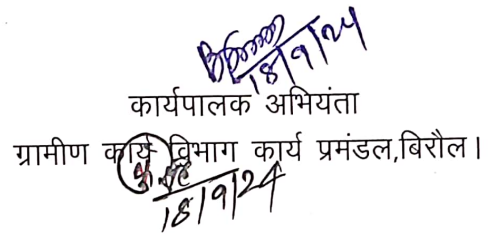 18/9/24
कार्यपालक अभियंता
ग्रामीण कार्य विभाग कार्य प्रमंडल,बिरौल।
18/9/24